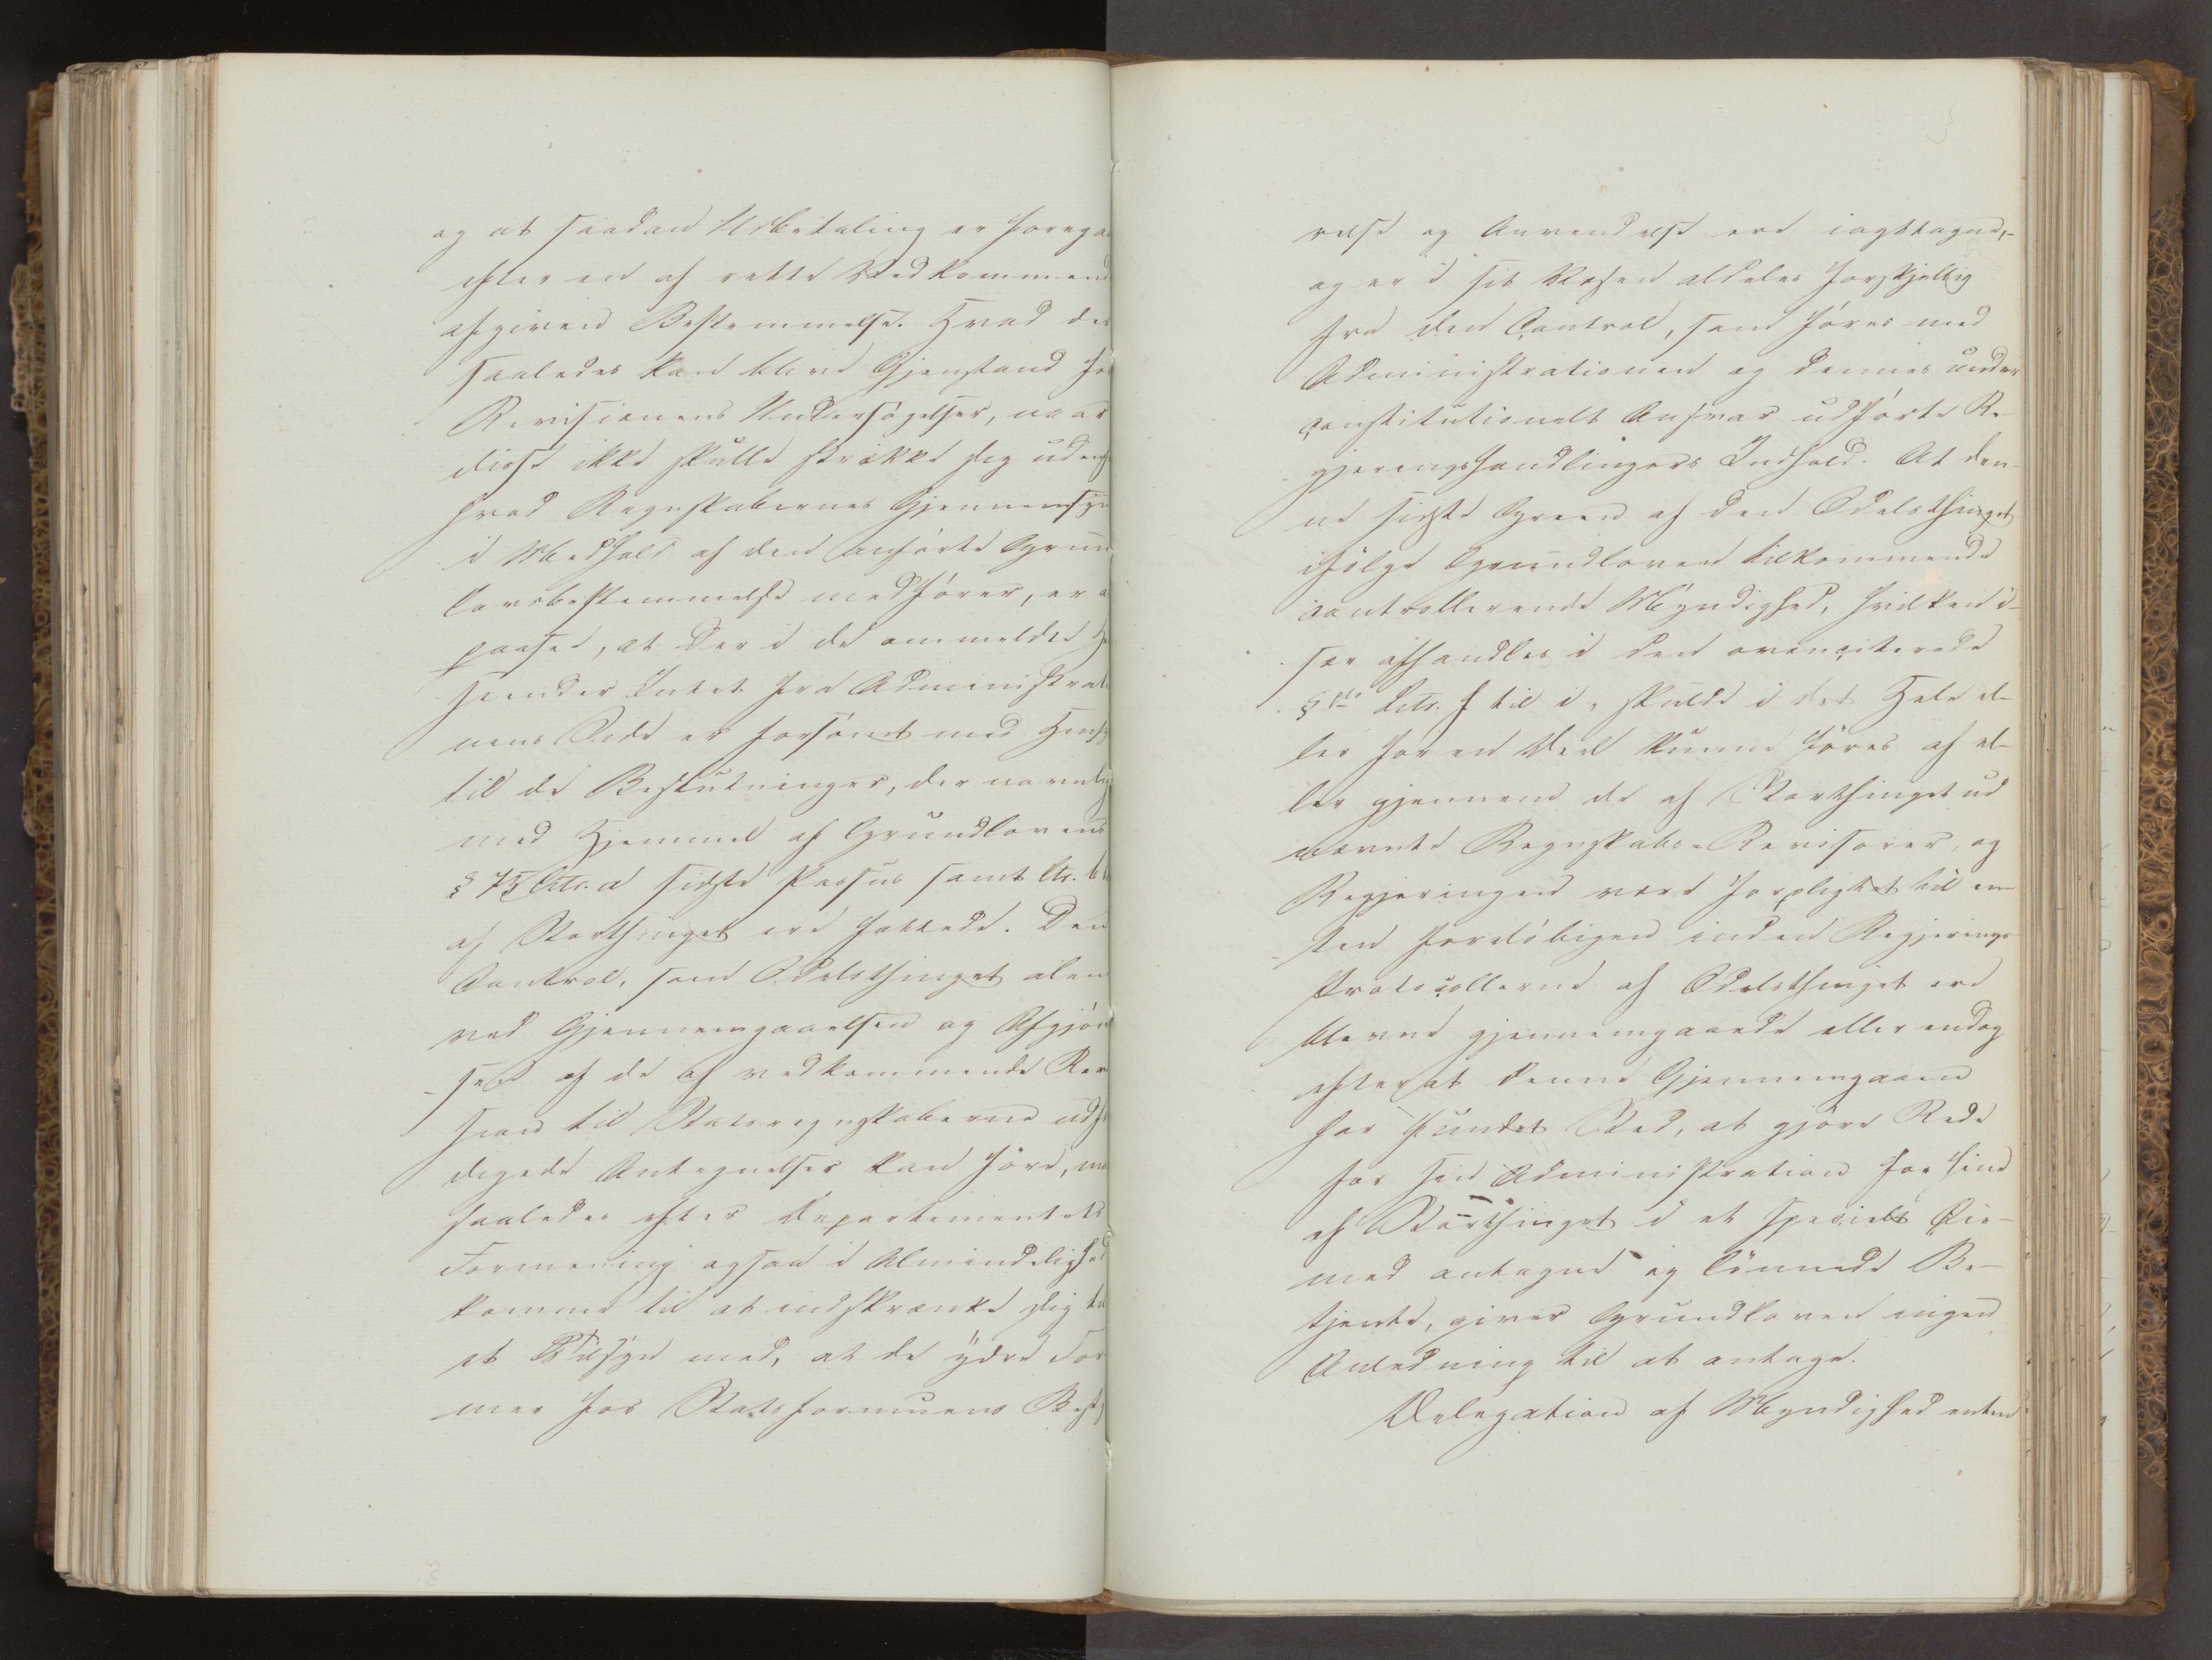 og at saadan Udbetaling er foregaa
efter en af rette Vedkommend
afgiven Bestemmelse. Hvad der
saaledes kan blive Gjenstand for
Revisionens Undersøgelser, naar
disse ikke skulle strække sig udenfo
hvad Regnskabernes Gjennemsyn
i Medhold af den anførte Grund
lovsbestemmelse medfører, er a
paasee, at der i de ommeldte He
seender Intet fra Administrati
nens Side er forsømt med Hensy
til de Beslutninger, der navnlig
med Hjemmel af Grundlovens
§ 75 Litr. a sidste Passus samt Ltr. b
af Storthinget ere fattede. Den
Control, som Odelsthinget alene
ved Gjennemgaaelsen og Afgjør
sen af de af vedkommende Rev
sion til Statsregnskaberne udfæ
digede Antegnelser kan føre, maa
saaledes efter Departementets
Formening ogsaa i Almindelighed
komme til at indskrænke sig til
et Tilsyn med, at de ydre For
mer for Statsformuens Besty
relse og Anvendelse ere iagttagne,-
og er i sit Væsen aldeles forskjellig
fra den Control, som føres med
Administrationen og dennes under
constitutionelt Ansvar udførte Re-
gjeringshandlingers Indhold. At den-
ne sidste Green af den Odelsthinget
ifølge Grundloven tilkommende
controllerende Myndighed, hvilken i-
sær afhandles i den ovenciterede
§ Litr. f til i, skulde i det Hele el-
ler for en Deel kunne føres af el-
ler gjennem de af Storthinget ud
nævnte Regnskabs-Revisorer, og
Regjeringen være forpligtet til en-
ten foreløbigen inden Regjerings
Protocollerne af Odelsthinget ere
blevne gjennemgaaede eller endog
efterat denne Gjennemgaaen
har fundet Sted, at gjøre Rede
for sin Administration for sine
af Storthinget i et specielt Øie-
med antagne og lønnede Be-
tjente, giver Grundloven ingen
Anledning til at antage.
Delegation af Myndighed enten